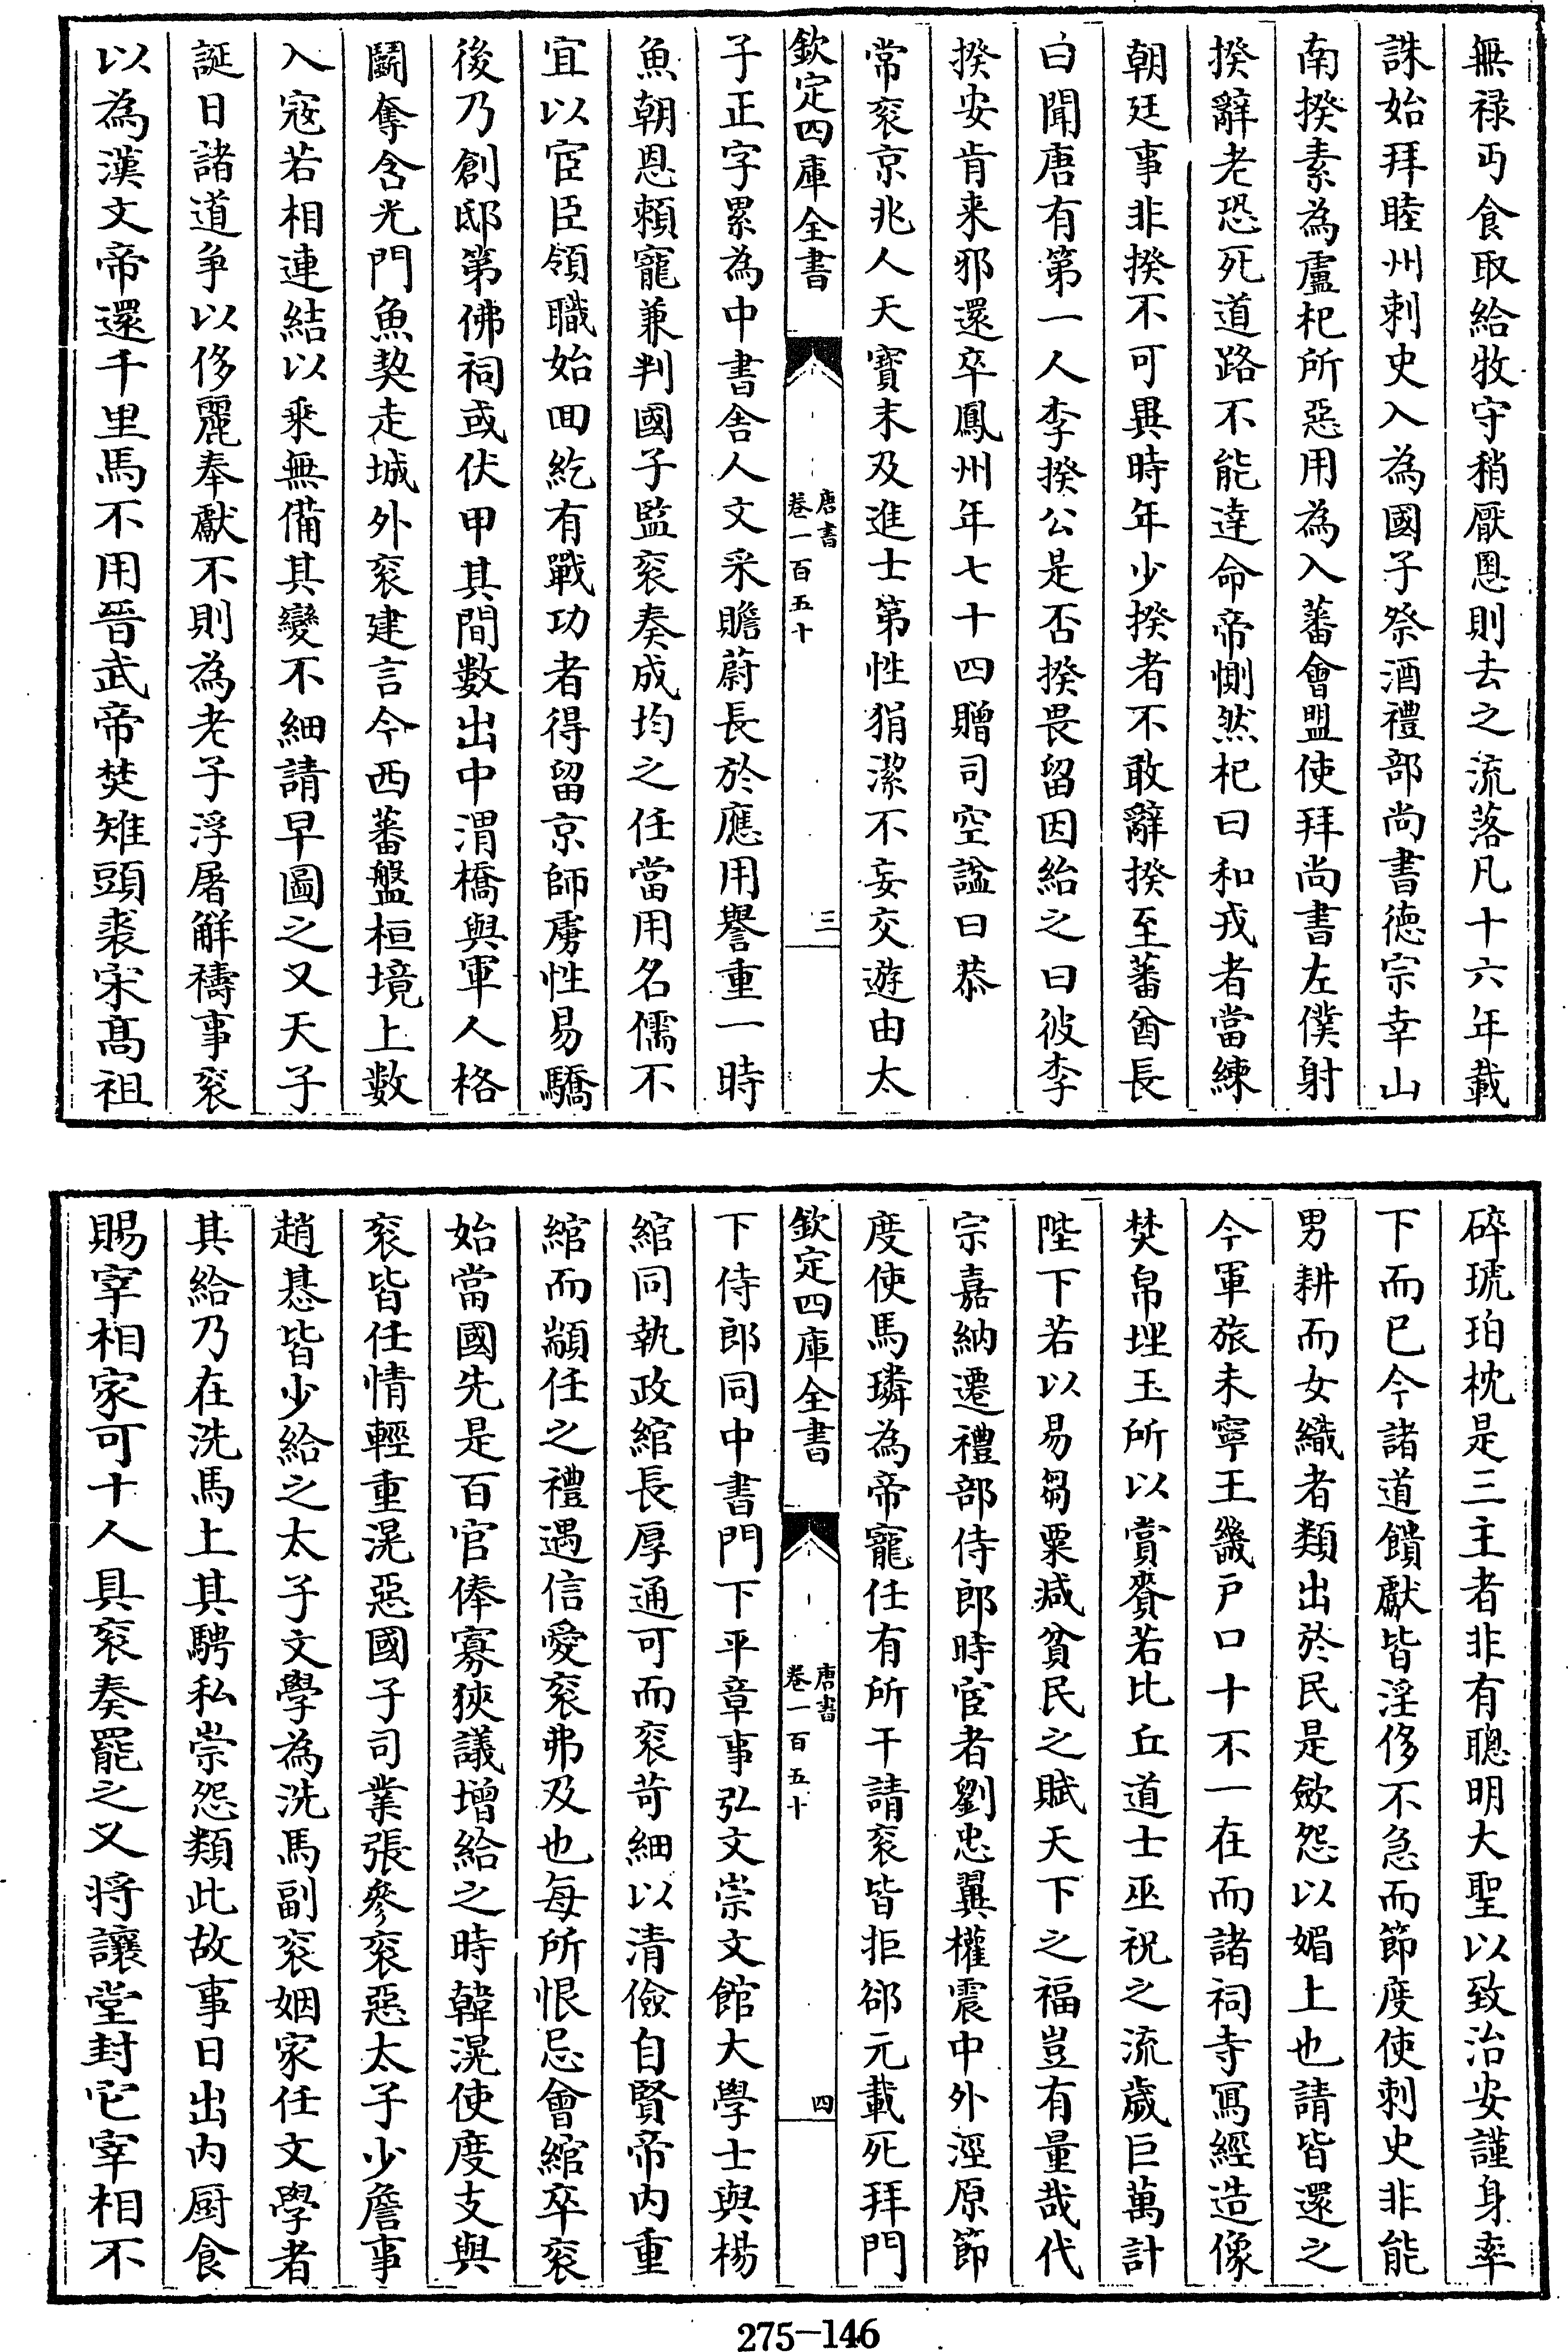 無禄丐食取給牧守稍厭恩則去之流落凡十六年載
誅始拜睦州刺史入為國子祭酒禮部尚書徳宗幸山
南揆素為盧杞所惡用為入蕃會盟使拜尚書左僕射
揆辭老恐死道路不能達命帝惻然杞曰和戎者當練
朝廷事非揆不可異時年少揆者不敢辭揆至蕃酋長
曰聞唐有第一人李揆公是否揆畏留因紿之曰彼李
揆安肯来邪還卒鳳州年七十四贈司空諡曰恭
常衮京兆人天寳末及進士第性狷潔不妄交遊由太
欽定四庫全書
唐書
卷一百五十
三
子正字累為中書舍人文采贍蔚長於應用譽重一時
魚朝恩頼寵兼判國子監衮奏成均之任當用名儒不
宜以宦臣領職始回紇有戰功者得留京師虜性易驕
後乃創邸第佛祠或伏甲其間數出中渭橋與軍人格
鬬奪含光門魚契走城外衮建言今西蕃盤桓境上數
入寇若相連結以乘無備其變不細請早圖之又天子
誕日諸道爭以侈麗奉獻不則為老子浮屠解禱事衮
以為漢文帝還千里馬不用晉武帝焚雉頭裘宋髙祖
碎琥珀枕是三主者非有聰明大聖以致治安謹身率
下而已今諸道饋獻皆淫侈不急而節度使刺史非能
男耕而女織者類出於民是斂怨以媚上也請皆還之
今軍旅未寧王畿戸口十不一在而諸祠寺寫經造像
焚帛埋玉所以賞賚若比丘道士巫祝之流歲巨萬計
陛下若以易芻粟減貧民之賦天下之福豈有量哉代
宗嘉納遷禮部侍郎時宦者劉忠翼權震中外涇原節
度使馬璘為帝寵任有所干請衮皆拒郤元載死拜門
欽定四庫全書
唐書
卷一百五十
四
下侍郎同中書門下平章事弘文崇文館大學士與楊
綰同執政綰長厚通可而衮苛細以清儉自賢帝内重
綰而顓任之禮遇信愛衮弗及也每所恨忌會綰卒衮
始當國先是百官俸寡狹議增給之時韓滉使度支與
衮皆任情輕重滉惡國子司業張參衮惡太子少詹事
趙惎皆少給之太子文學為洗馬副衮姻家任文學者
其給乃在洗馬上其騁私崇怨類此故事日出内厨食
賜宰相家可十人具衮奏罷之又将讓堂封它宰相不
275-146